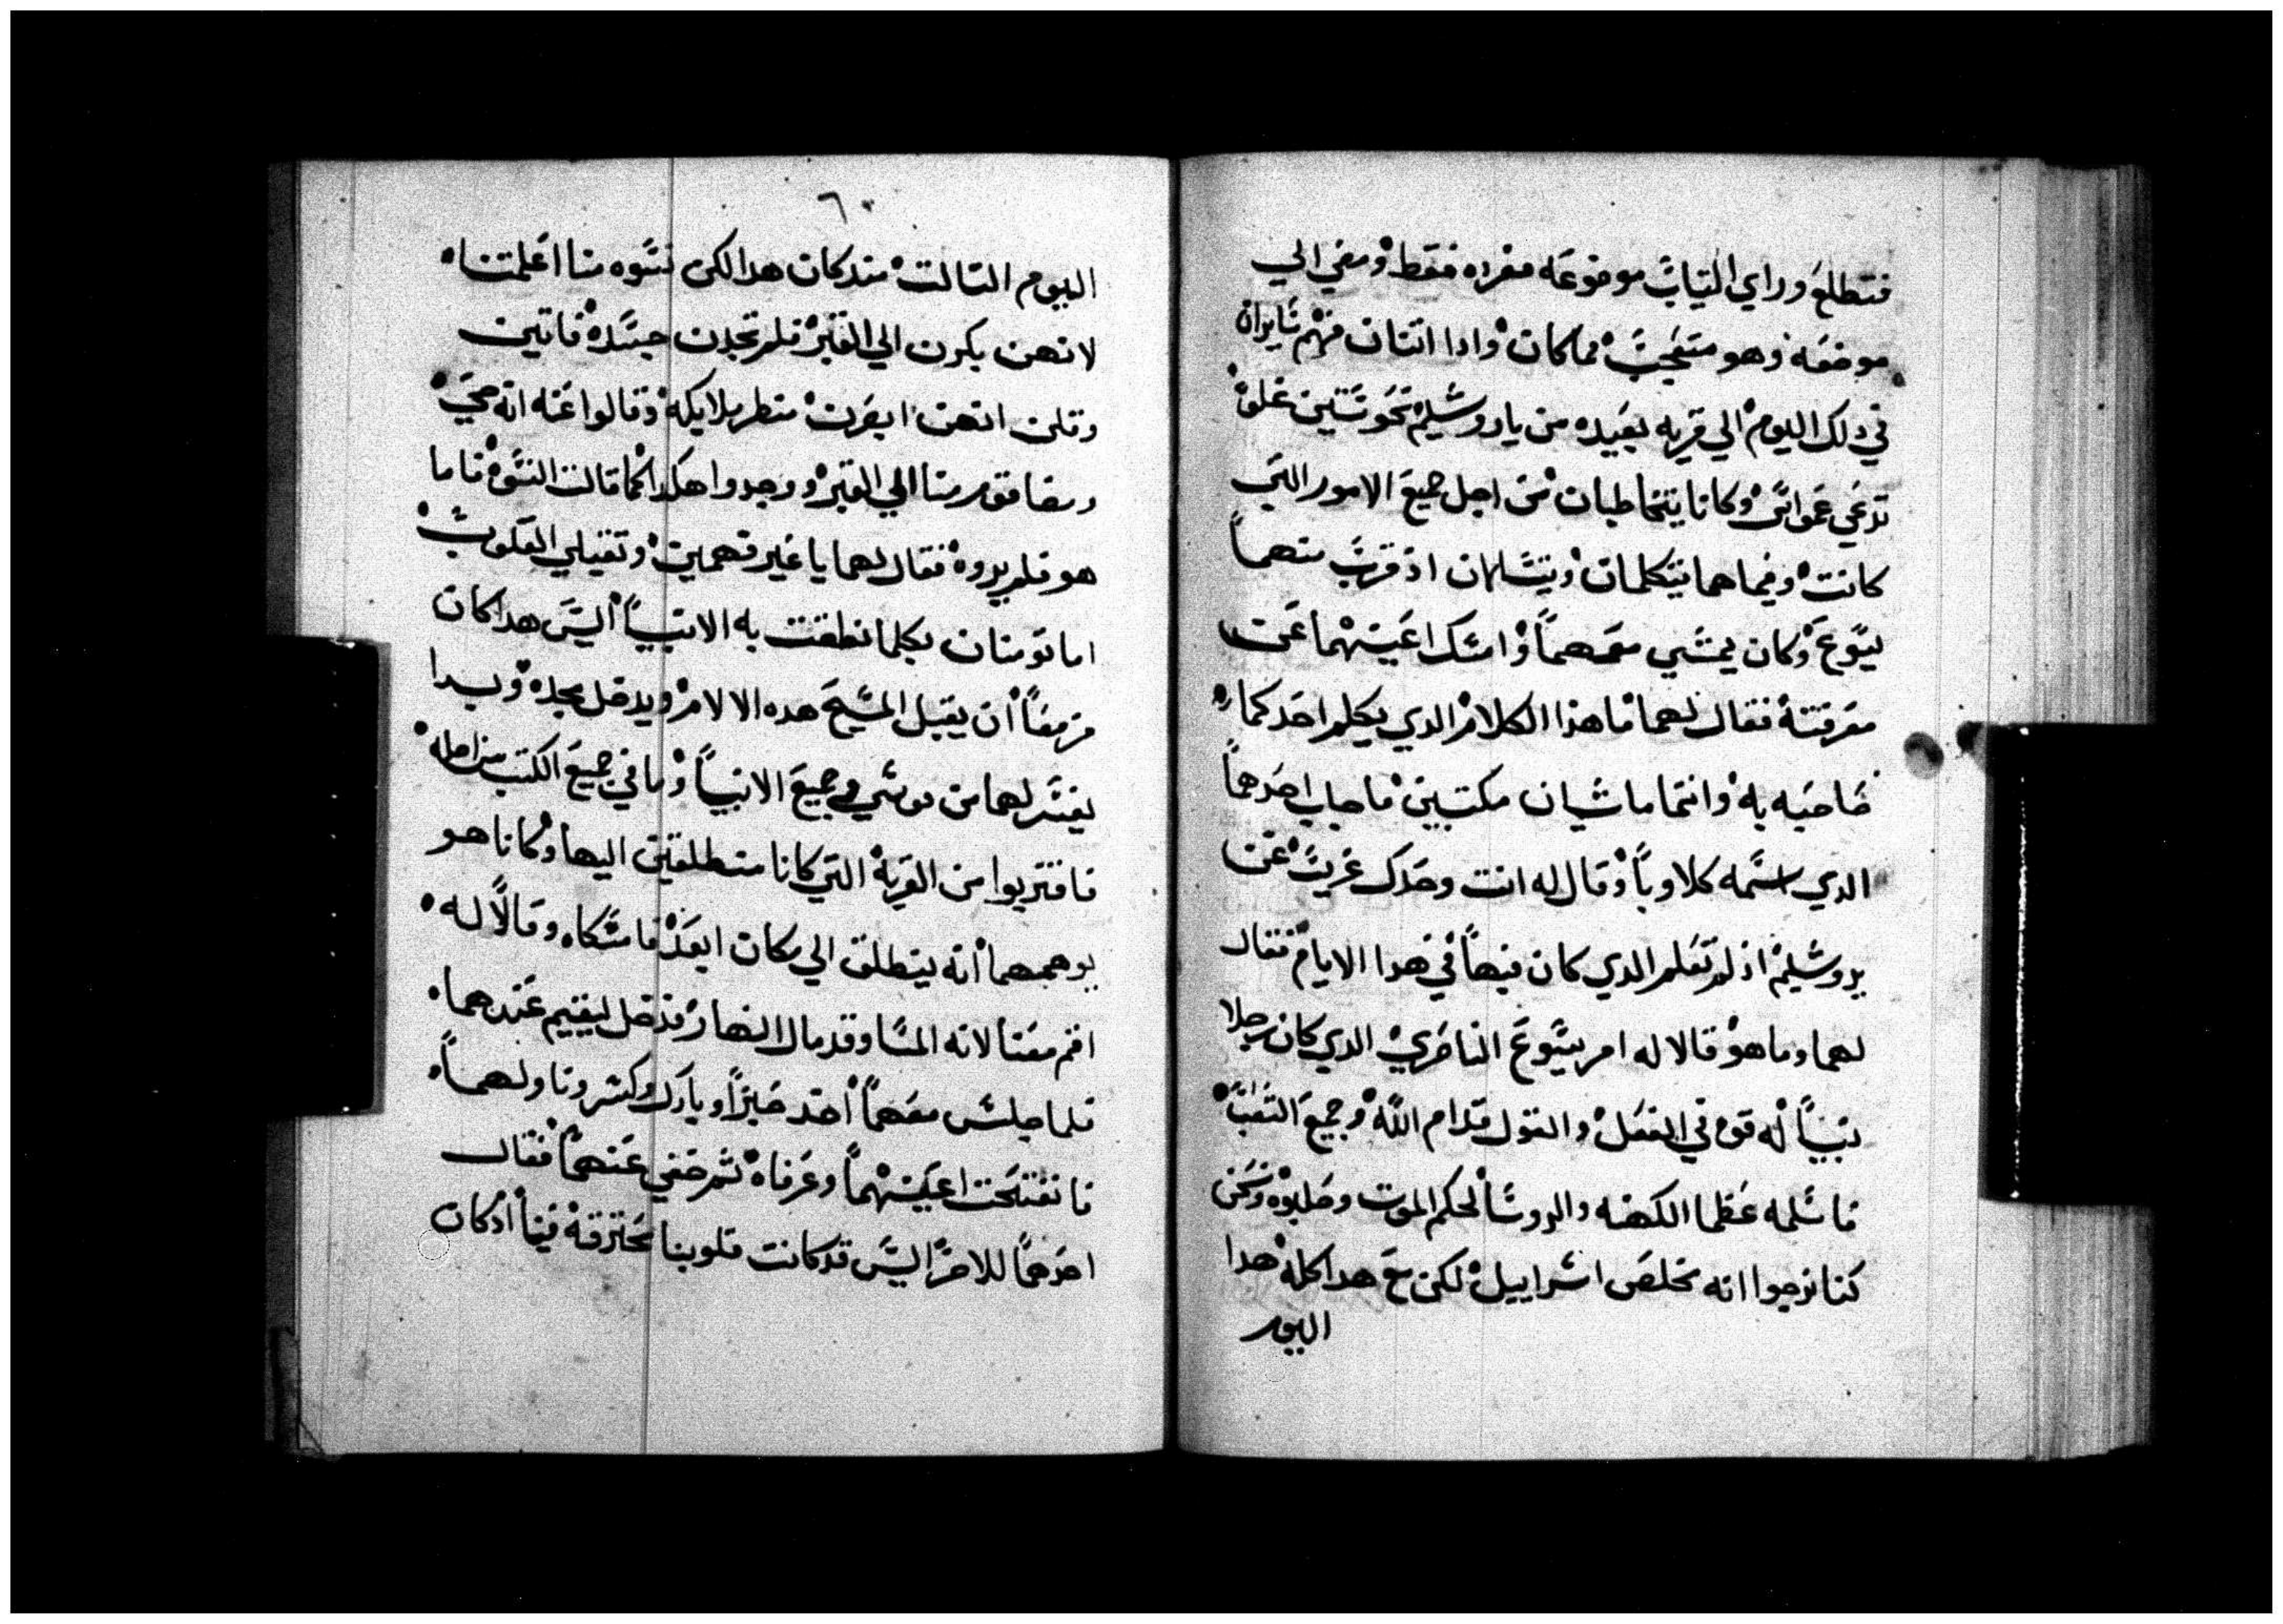 فتطلع وراي التياب موضوعه مفرده فقط ومضي الي
موضعه وهو متعجب مما كان واذا اتنان منهم سايران
في دلك اليوم الي قريه بعيده من ياروشليم نحو ستين غلوه
تدعي عمواس وكانا يتخاطبان من اجل جميع الامور التي
كانت وفيما هما يتكلمان ويتسالان اذ قرب منهما
يسوع وكان يمشي معهما وامسك اعينهما عن
معرفته فقال لهما ما هذا الكلام الدي يكلم احدكما
صاحبه به وانتما ماشيان مكتبين فاجاب احدهما
الدي اسمه كلاوبا وقال له انت وحدك غريب عن
يروشليم اذ لم تعلم الدي كان فيها في هدا الايام فقال
لهما وما هو قالا له امر يسوع الناصري الدي كان رجلا
نبيا له قوه في الفعل والقول قدام الله وجميع الشعب
فاسلمه عظما الكهنه والروسا لحكم الموت وصلبوه ونحن
كنا نرجوا انه مخلص اسراييل لكن مع هدا كله هدا
اليوم
٦٠
اليوم التالت مند كان هدا لكن نسوه منا اعلمتناه
لانهن بكرن الي القبر فلم تجدن جسده فاتين
وقلن انهن ابصرن منظر ملايكه وقالوا عنه انه حي
ومضا قوم منا الي القبر ووجدوا هكدا كما قالت النسوه فاما
هو فلم يروه فقال لهما يا غير فهمين وتقيلي القلوب
اما تومنان بكلما نطقت به الانبيا اليس هدا كان
مزمعا ان يقبل المسيح هده الالام ويدخل مجده وبدا
يفسر لهما من موسي وجميع الانبيا وما في جميع الكتب من اجله
فاقتربوا من القريه التي كانا منطلقين اليها وكانا هو
يوهمهما انه ينطلق الي مكان ابعد فامسكاه وقالا له
اقم معنا لانه المسا وقد مال النهار فدخل ليقيم عندهما
فلما جلس معهما اخد خبزا وبارك وكسر وناولهما
فانفتحت اعينهما وعرفاه تم خفي عنهما فقال
احدهما للاخر اليس قد كانت قلوبنا محترقه فينا اذ كان